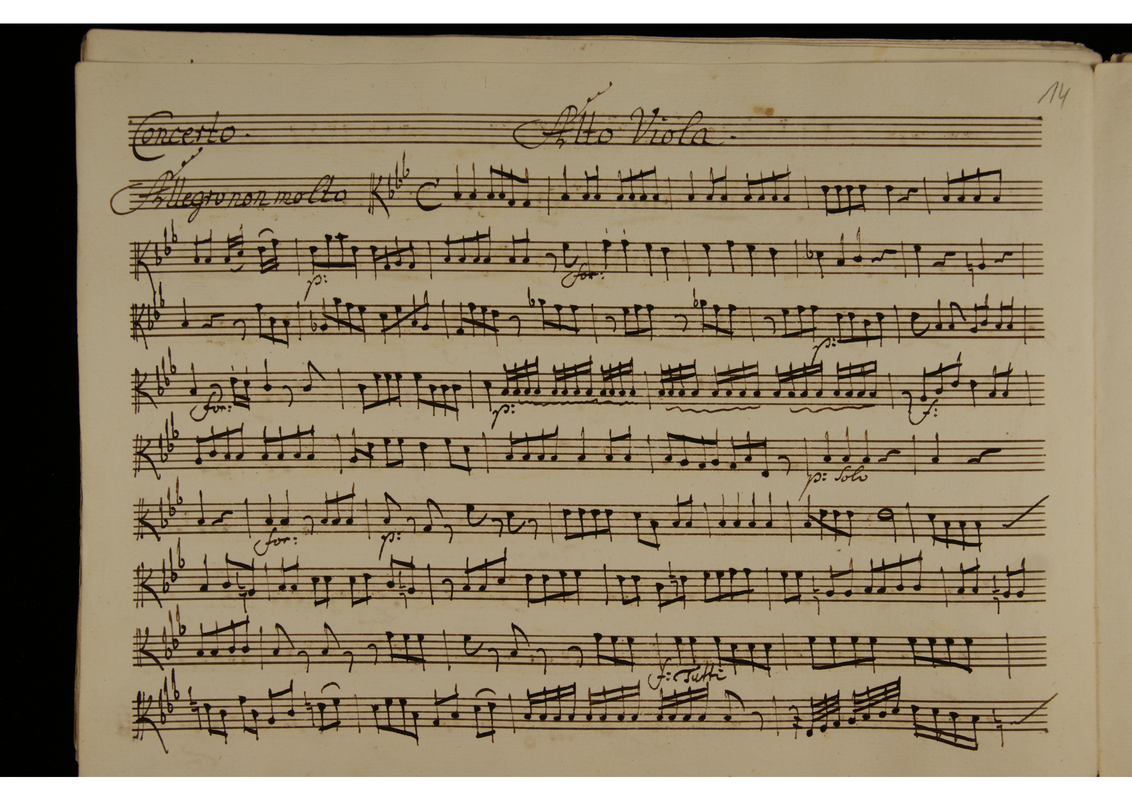 14
Concerto. Alto Viola.
Allegro non molto
p: for:
p:
for: p: f:
p: Solo
for: p:
f: Tutti